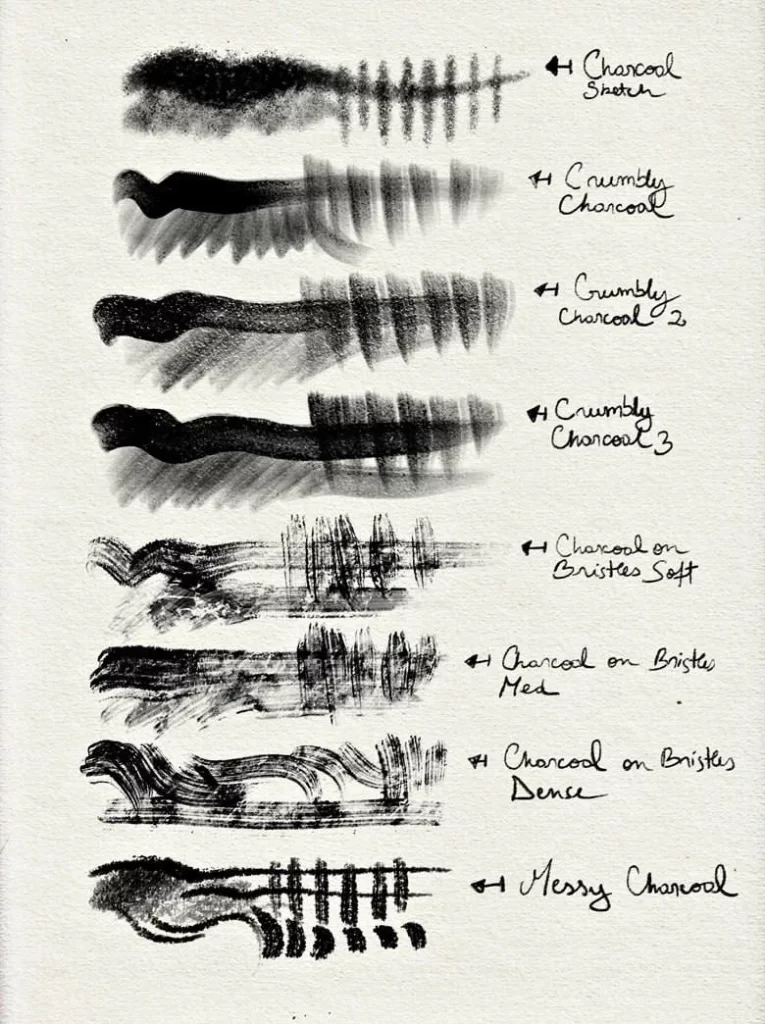 Charcoal
Sketch
Crumbly
Charcoal
Crumbly
Charcoal 2
Crumbly
Charcoal 3
Charcoal on
Bristles Soft
Charcoal on Bristles
Med
Charcoal on Bristles
Dense
Messy Charcoal